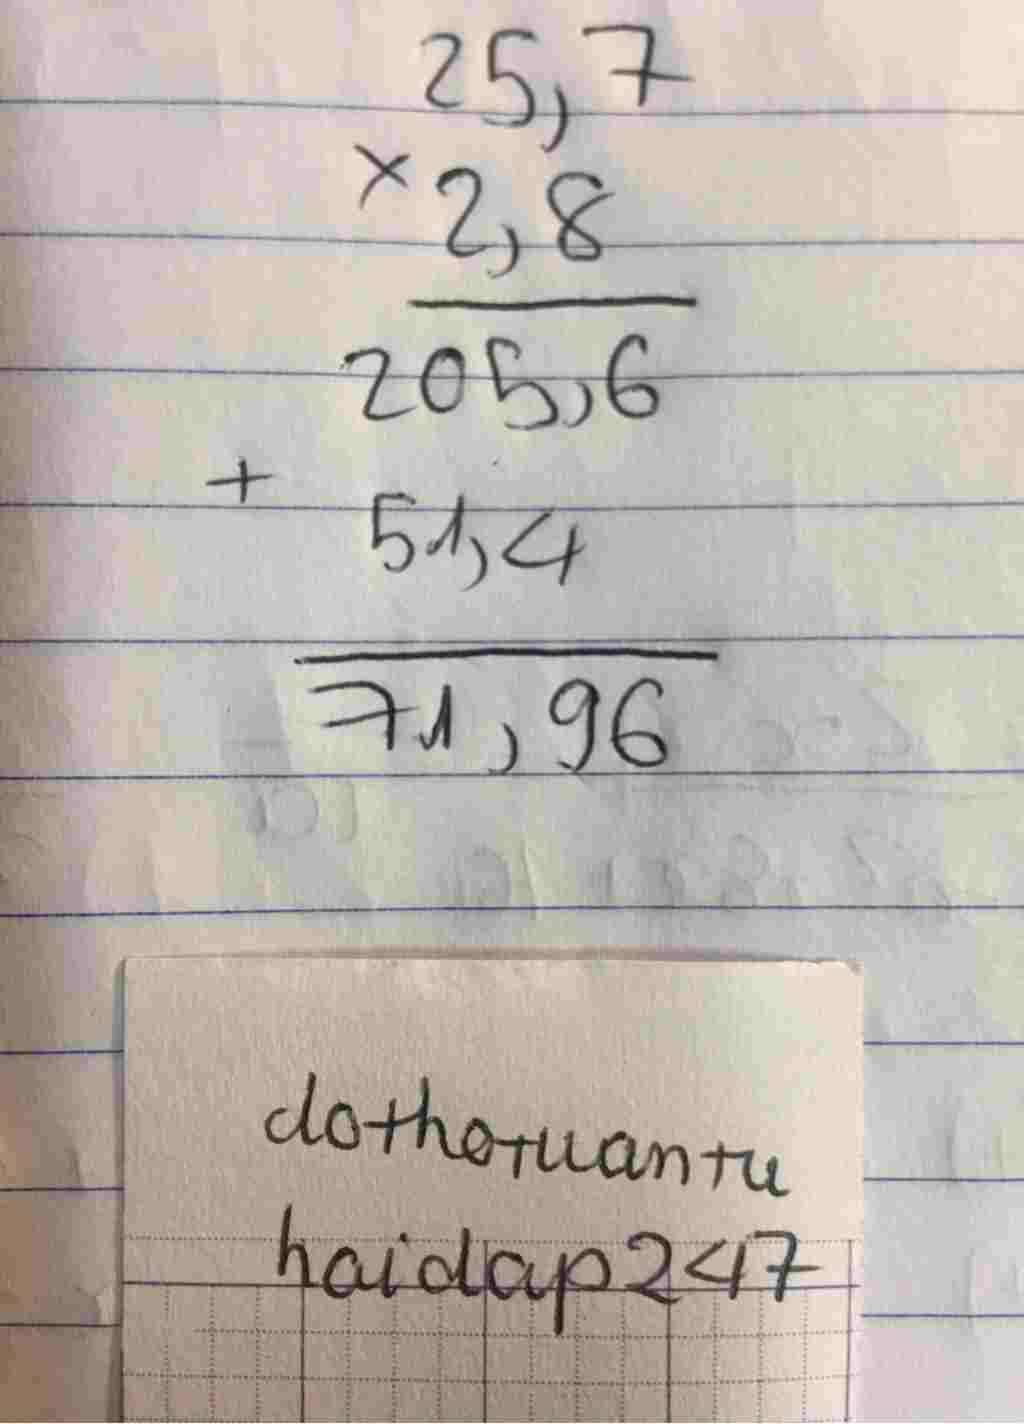 25,7
× 2,8
205,6
+
51,4
71,96
dothotuantu
haidap247